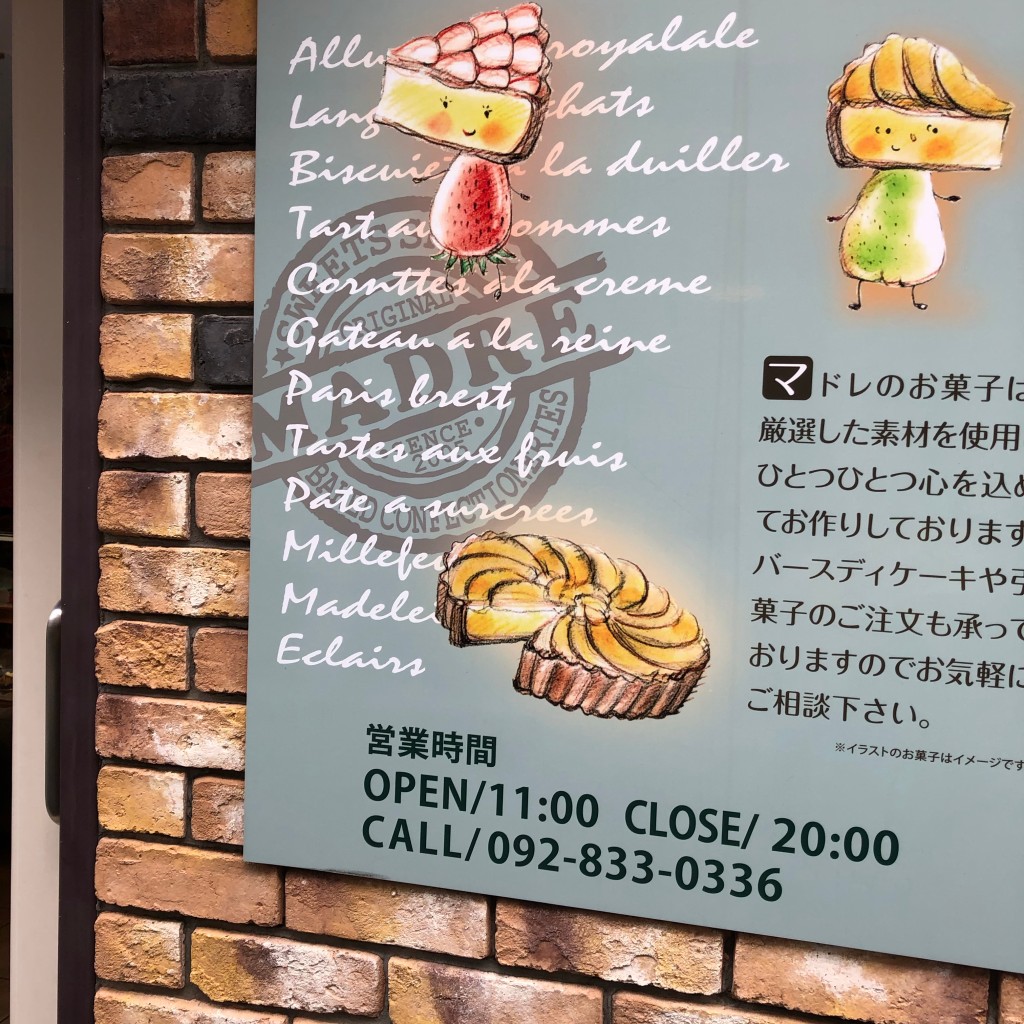 royalale
Biscuie la duiller
Tart au ommes
Cornttes ala creme
Gateau a la reine
Paris brest
Tartes aux fruis
Pate a surcrees
Millefeu
Madelei
Eclairs
ORIGINAL
MADRE
マドレのお菓子は
厳選した素材を使用
ひとつひとつ心を込め
てお作りしております
バースディケーキや引
菓子のご注文も承って
おりますのでお気軽に
ご相談下さい。
※イラストのお菓子はイメージです
営業時間
OPEN/11:00 CLOSE/ 20:00
CALL/092-833-0336